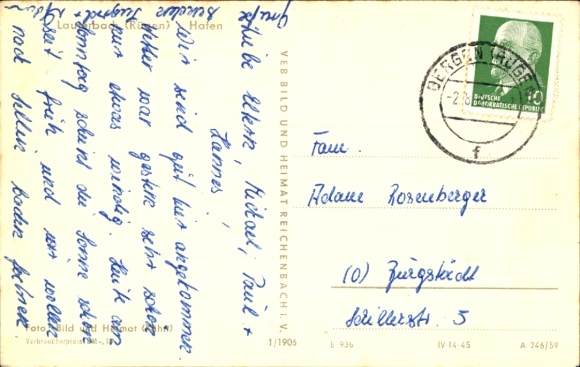 Lauterbach (Rügen) Hafen
Liebe Eltern, Michael, Paul +
Hannes!
Wir sind gut hier angekommen.
Wetter war gestern sehr schön
nur etwas windig. Heute am
Sonntag scheint die Sonne schon
seit früh und wir wollen
nach Sellin baden fahren.
Grüße
senden
Foto: Bild und Heimat
Verbraucherpreis
VEB BILD UND HEIMAT REICHENBACH I. V.
1/1906
BERGEN (RÜGEN)
f
10
DEUTSCHE
DEMOKRATISCHE REPUBLIK
Fam.
Adam Rosenberger
(O) Burgstädt
Schillerstr. 5
E 936
IV-14-45
A 246/59